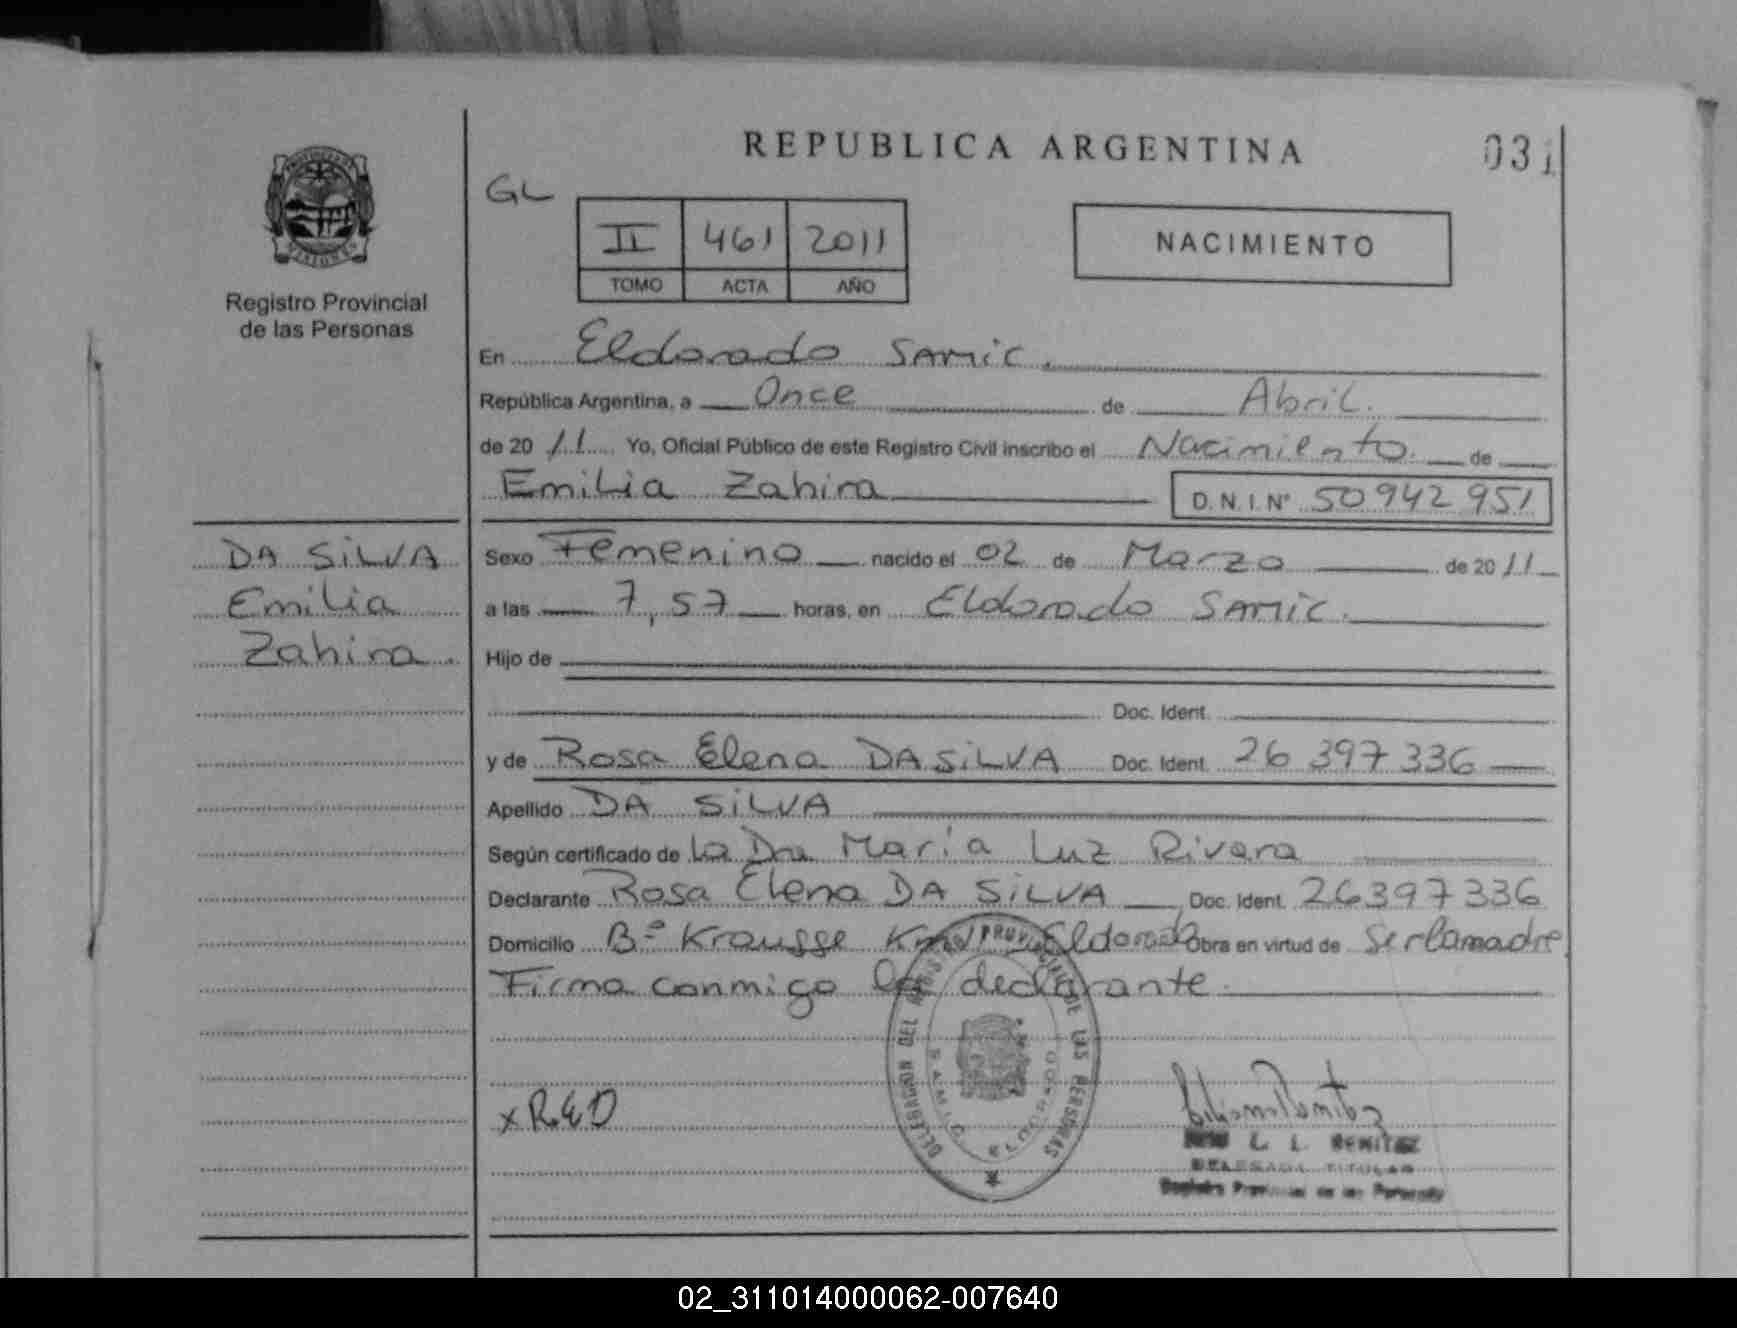 REPUBLICA ARGENTINA
031
GL
II 461 2011
TOMO ACTA AÑO
NACIMIENTO
Registro Provincial
de las Personas
En Eldorado SAMIC.
República Argentina, a Once de Abril.
de 2011 Yo, Oficial Público de este Registro Civil inscribo el Nacimiento de
Emilia Zahira D.N.I.Nº 50942951
DA SILVA
Emilia
Zahira.
Sexo Femenino nacido el 02 de Marzo de 2011
a las 7,57 horas, en Eldorado SAMIC.
Hijo de
Doc. Ident.
y de Rosa Elena DA SILVA Doc. Ident. 26 397 336
Apellido DA SILVA
Según certificado de La Dra María Luz Rivara
Declarante Rosa Elena DA SILVA Doc. Ident. 26397336
Domicilio Bº Krausse Eldorado Obra en virtud de Ser la madre
Firma conmigo la declarante.
DELEGACION DEL REGISTRO PROVINCIAL DE LAS PERSONAS
SAMIC ELDORADO
x R.E.D
L. L. BENITEZ
DELEGADA TITULAR
Registro Provincial de las Personas
02_311014000062-007640